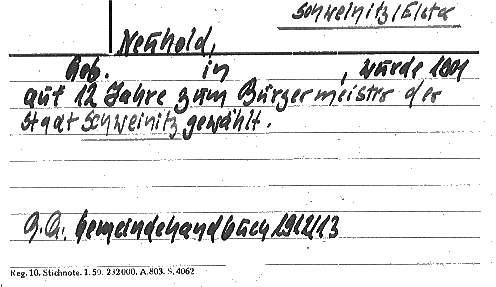 Schweinitz/Elster
Neuhold,
Geb. in , wurde 1801
auf 12 Jahre zum Bürgermeister der
Stadt Schweinitz gewählt.
Gemeindehandbuch 1912/13
Reg. 10. Stichnote. 1. 50. 232000. A. 803. S. 4062